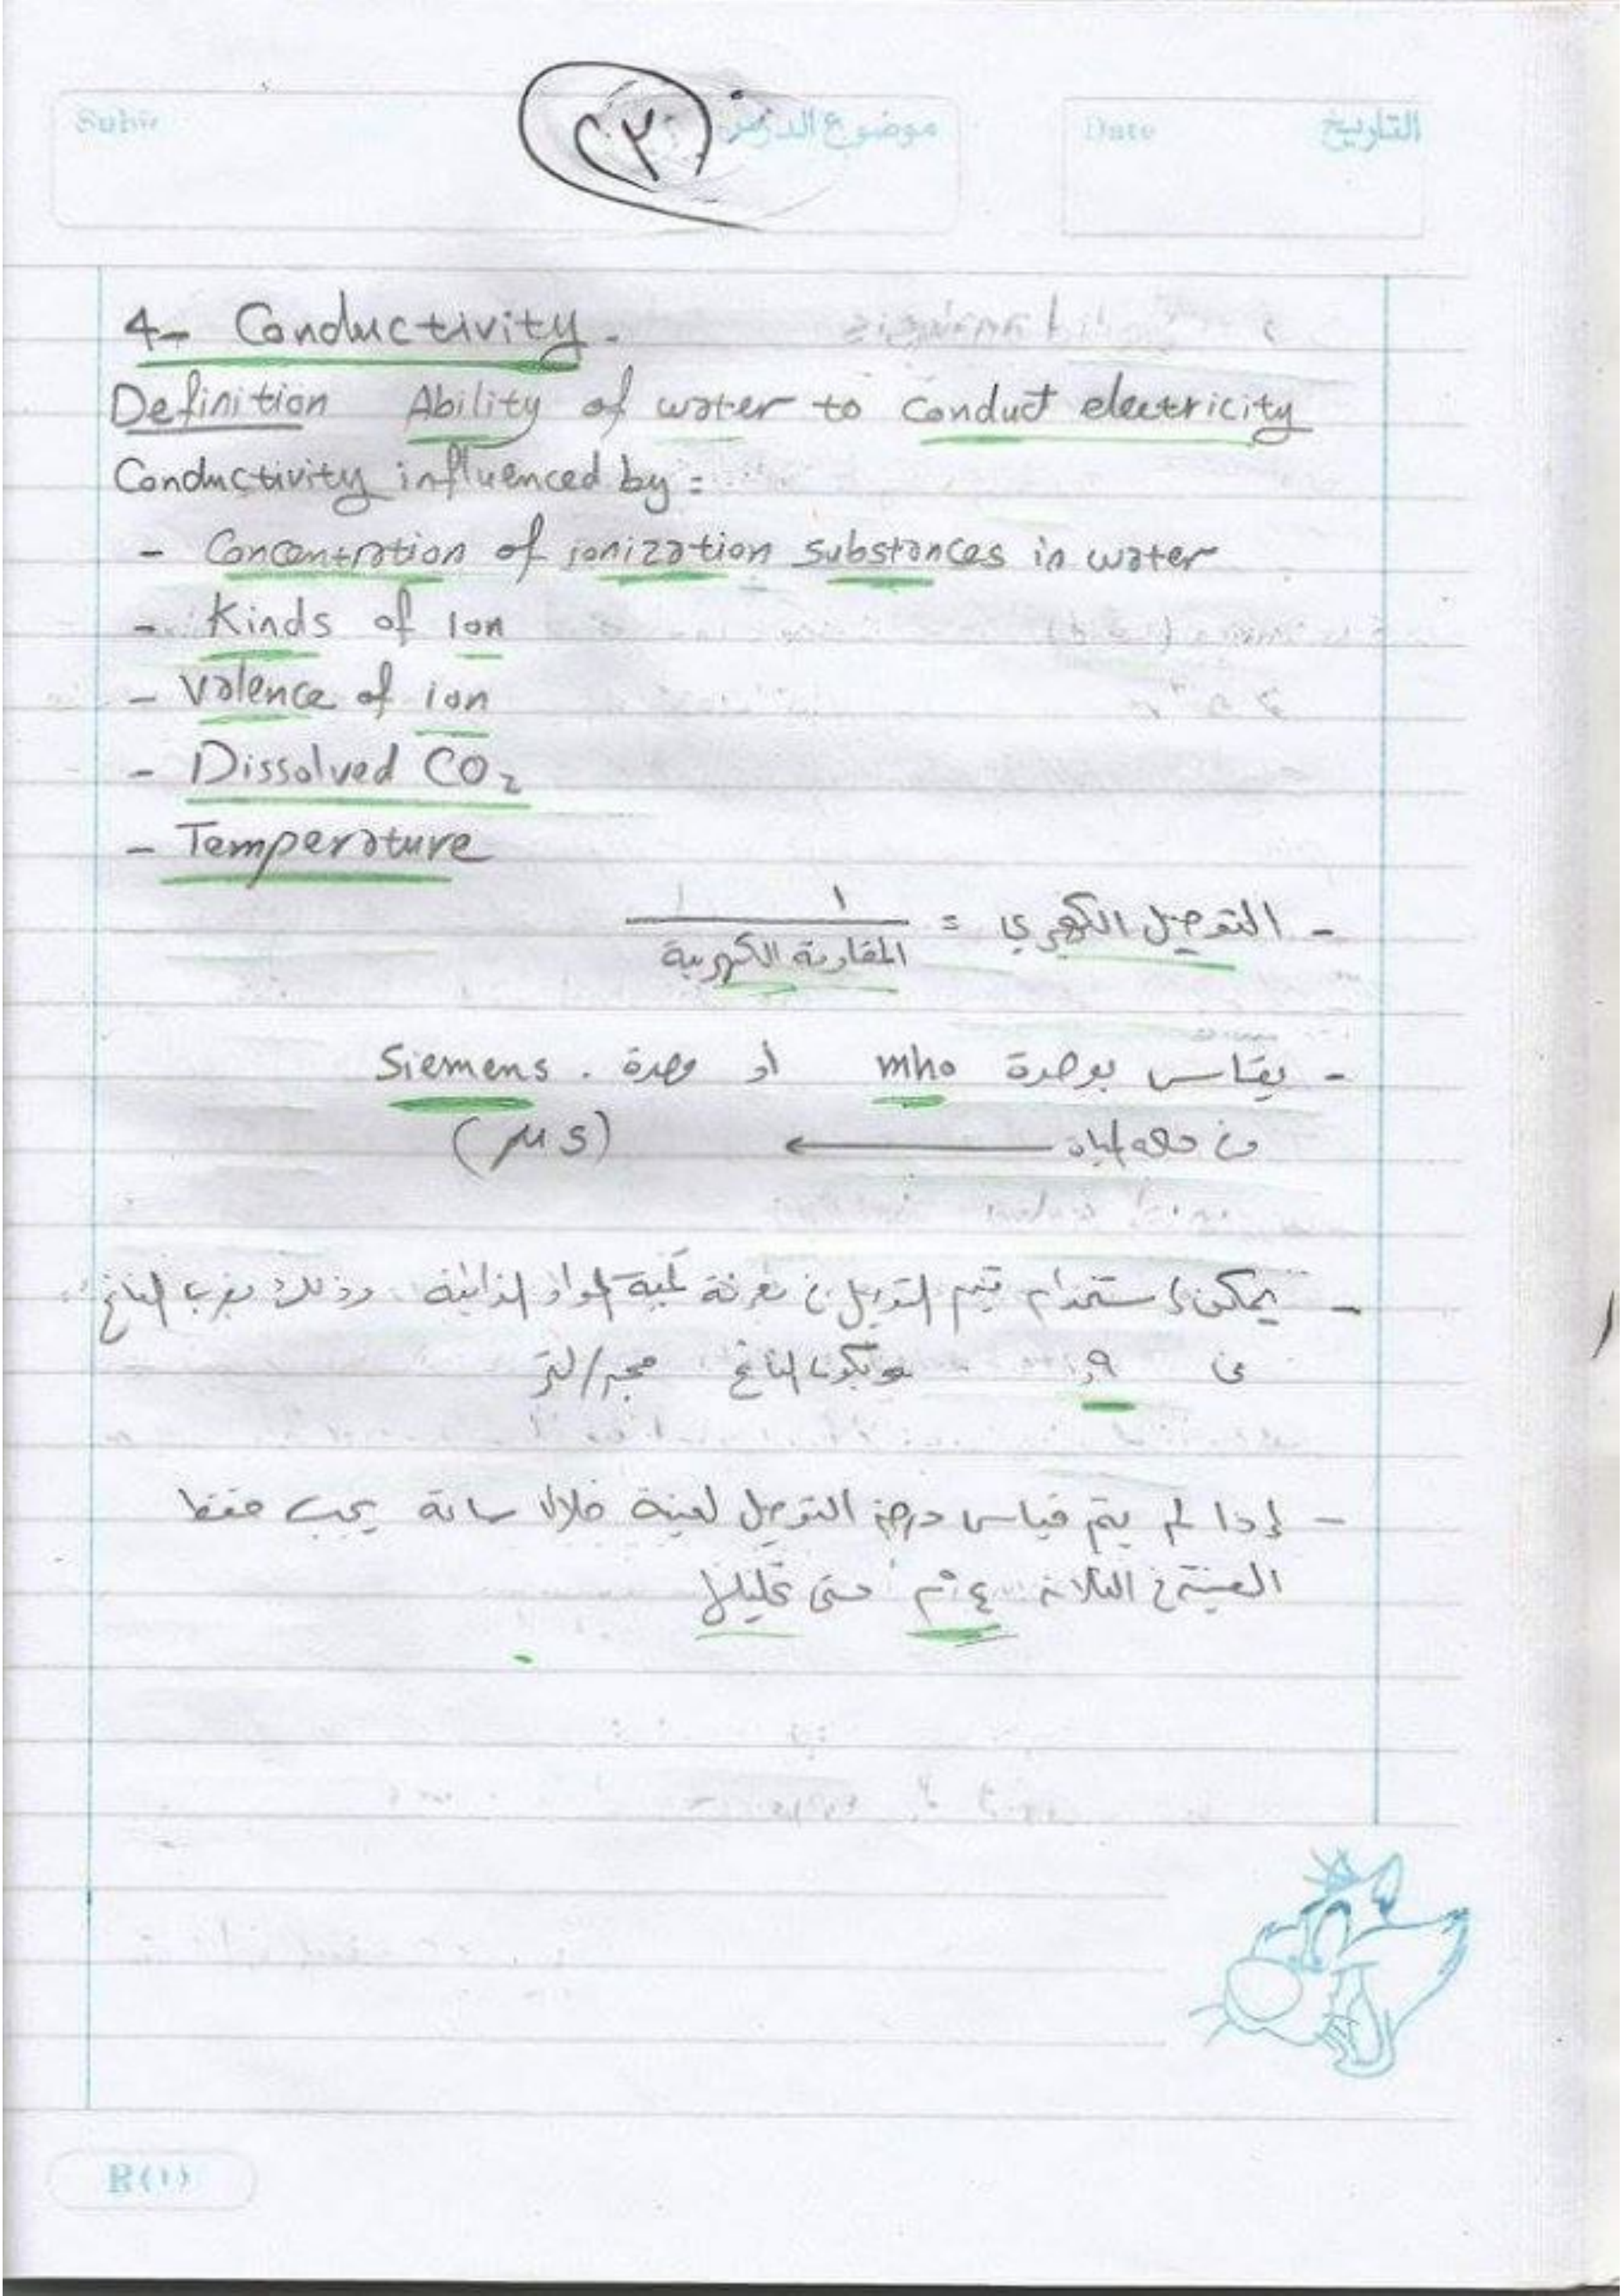 موضوع الدرس
Date التاريخ
4- Conductivity.
Definition Ability of water to conduct electricity
Conductivity influenced by:
- Concentration of ionization substances in water
- Kinds of Ion
- Valence of ion
- Dissolved CO₂
- Temperature
- التوصيل الكهربي = ١ / المقاومة الكهربية
- يقاس بوحدة mho أو وحدة . Siemens
(μs) ←
- يمكن استخدام قيم التوصيل في معرفة كمية المواد الذائبة وذلك بضرب الناتج
في ويكون الناتج مجم/لتر
- إذا لم يتم قياس درجة التوصيل لعينة خلال ساعة يجب حفظ
العينة في الثلاجة ٤°م حتى تحليلها
R(1)